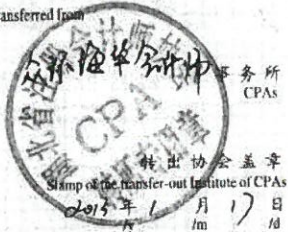 ansferred from
众环海华会计师事务所
CPAs
湖北省注册会计师协会
CPA
转出协会盖章
Stamp of the transfer-out Institute of CPAs
2015年1月17日
/y /m /d